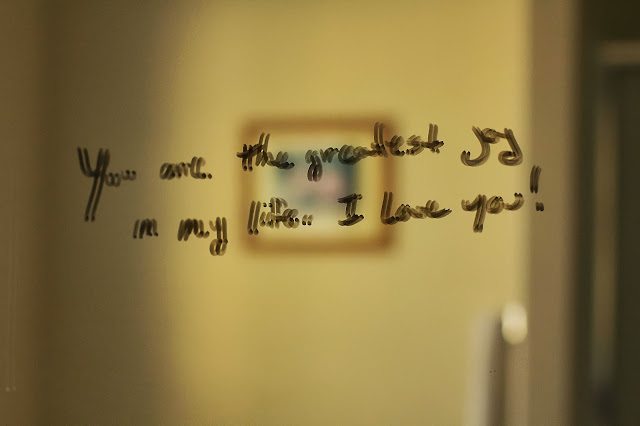 You are the greatest joy
in my life. I love you!